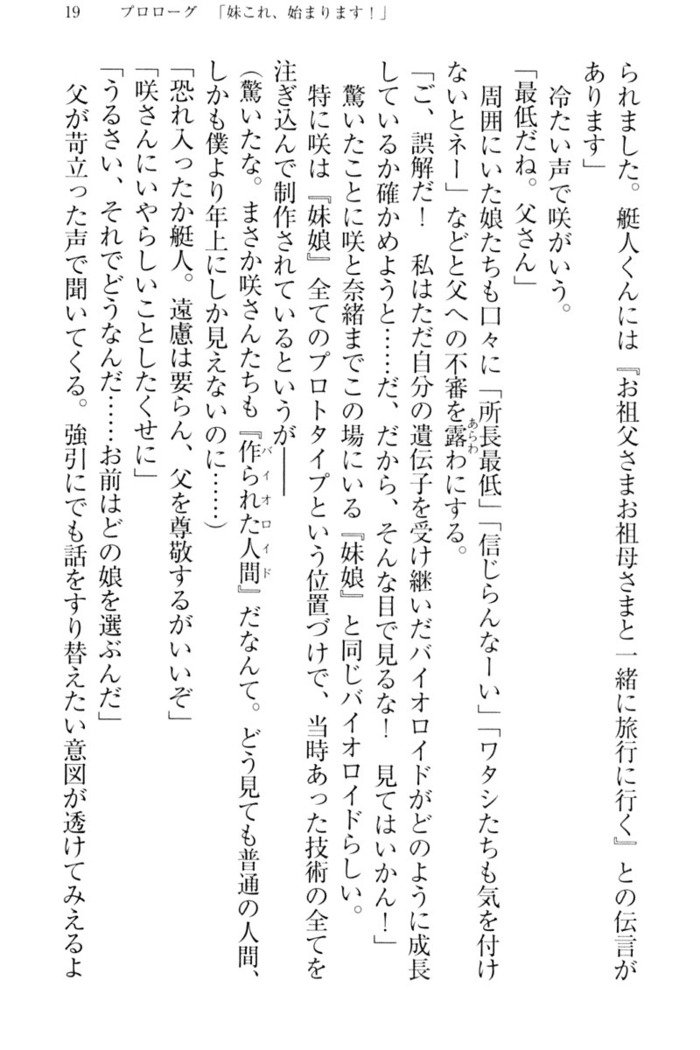 19　プロローグ　「妹これ、始まります！」
られました。艇人くんには『お祖父さまお祖母さまと一緒に旅行に行く』との伝言が
あります」
　冷たい声で咲がいう。
「最低だね。父さん」
　周囲にいた娘たちも口々に「所長最低」「信じらんなーい」「ワタシたちも気を付け
ないとネー」などと父への不審を露わにする。
あらわ
「ご、誤解だ！　私はただ自分の遺伝子を受け継いだバイオロイドがどのように成長
しているか確かめようと……だ、だから、そんな目で見るな！　見てはいかん！」
　驚いたことに咲と奈緒までこの場にいる『妹娘』と同じバイオロイドらしい。
　特に咲は『妹娘』全てのプロトタイプという位置づけで、当時あった技術の全てを
注ぎ込んで制作されているというが――
（驚いたな。まさか咲さんたちも『作られた人間』だなんて。どう見ても普通の人間、
バイオロイド
しかも僕より年上にしか見えないのに……）
「恐れ入ったか艇人。遠慮は要らん、父を尊敬するがいいぞ」
「咲さんにいやらしいことしたくせに」
「うるさい、それでどうなんだ……お前はどの娘を選ぶんだ」
　父が苛立った声で聞いてくる。強引にでも話をすり替えたい意図が透けてみえるよ